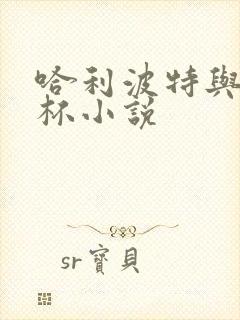 哈利波特與
杯小說
sr寶貝